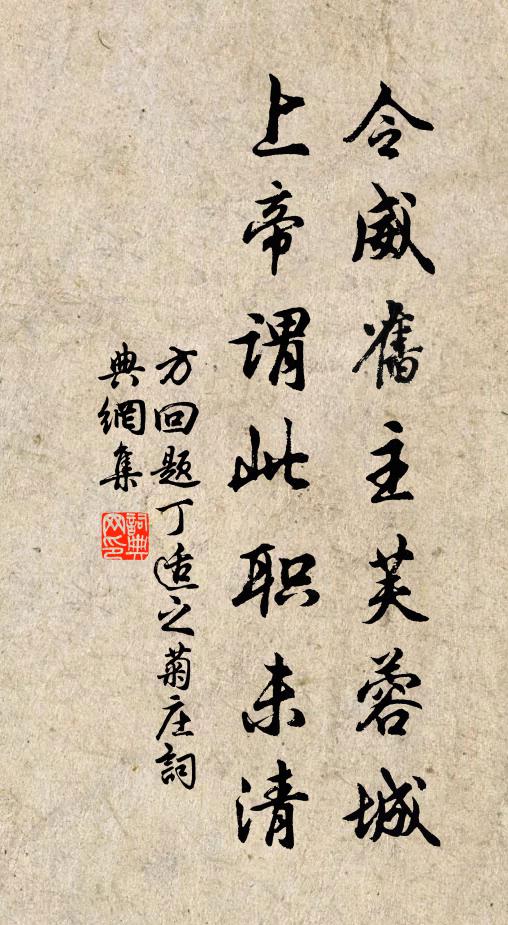 令威舊主芙蓉城
上帝謂此职未清
方回题丁适之菊庄詞
典網集
詞典网印